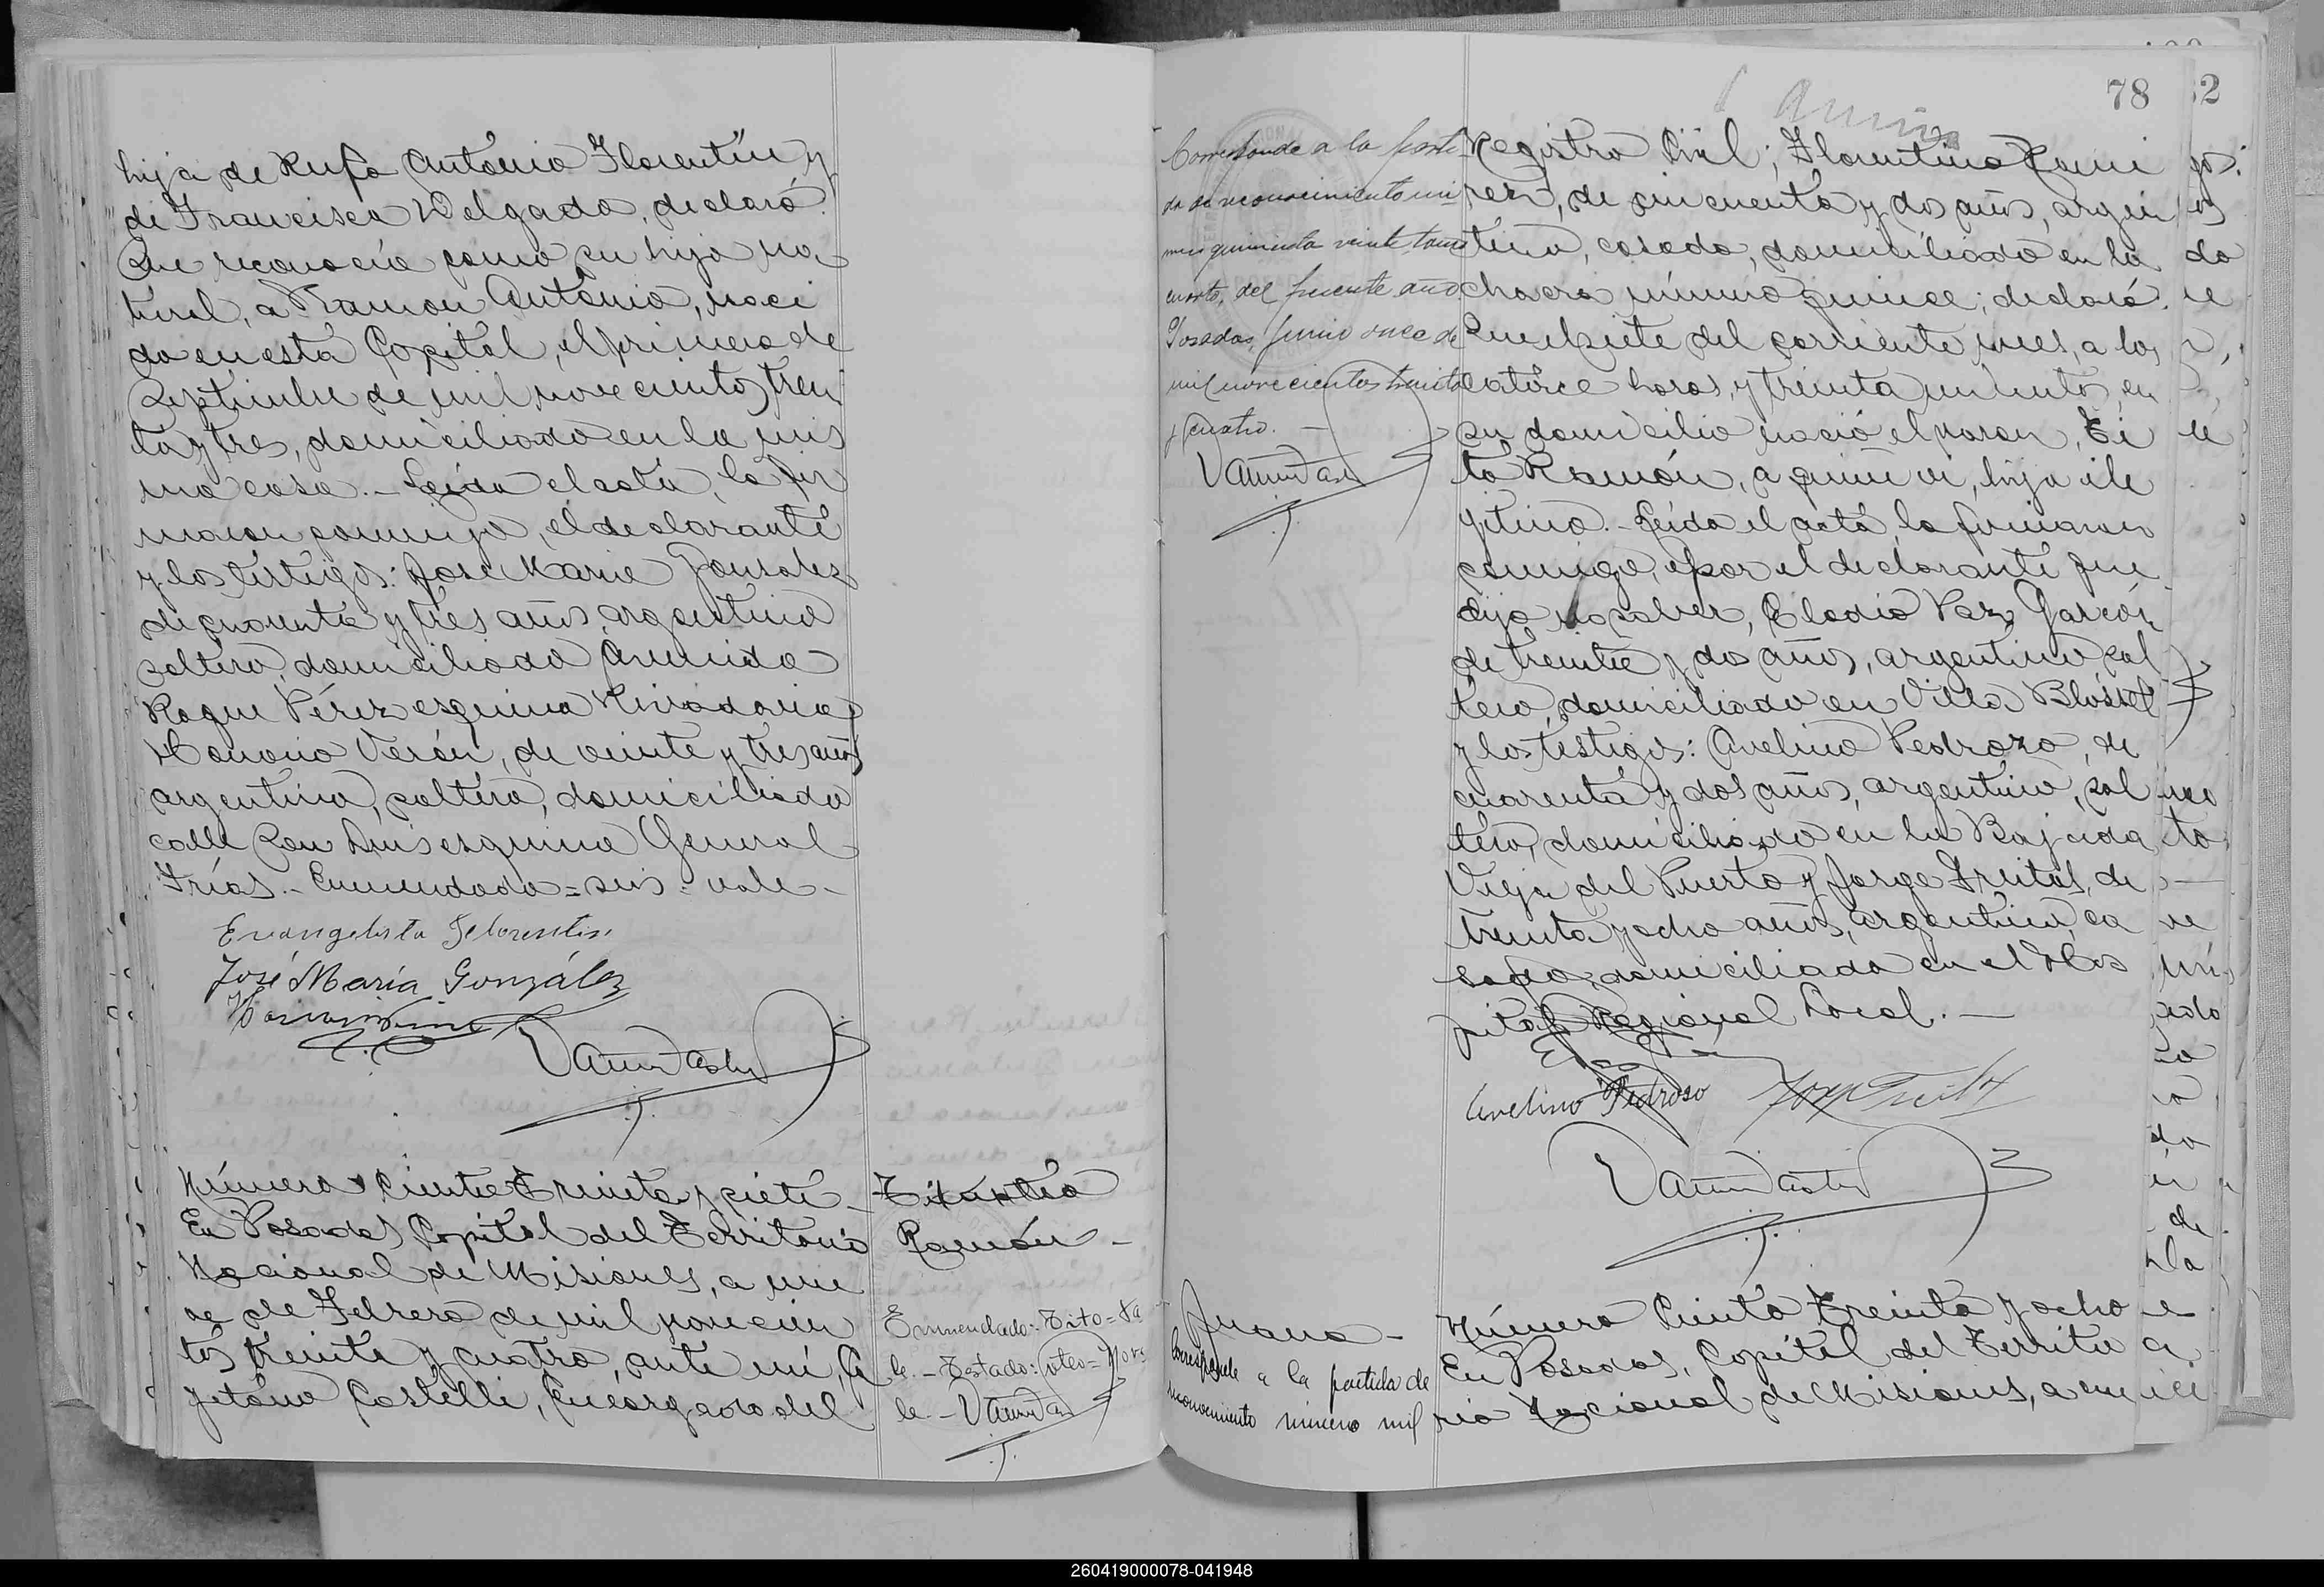 hijo de Rufo Antonio Florentín y
de Francisca Delgado, declaró:
Que reconocía como su hijo na
tural, a Ramon Antonio, naci
do en esta Capital, el primero de
Septiembre de mil novecientos trein
ta y tres, domiciliado en la mis
ma casa.- Leída el acta, la fir
maron conmigo, el declarante
y los testigos: José Maria Gonzalez
de cuarenta y tres años, argentino
soltero, domiciliado Avenida
Roque Pérez esquina Rivadavia y
Honorio Verón, de veinte y tres años
argentino, soltero, domiciliado
calle San Luis esquina General
Frías.- Enmendado=seis=vale-
Evangelista Florentin
José María González
Número Ciento Treinta y siete-
En Posadas, Capital del Territorio
Nacional de Misiones, a nue
ve de Febrero de mil novecien
tos treinta y cuatro, ante mí, Ca
yetano Castelli, Encargado del
Tito
Ramón-
Enmendado: Tito=Va
le.-Testado: oteo=No va
le-
78
Corresponde a la parti
da de reconocimiento nú
mero quinientos veinte tomo
cuarto, del presente año.
Posadas, Junio once de
mil novecientos treinta
y cuatro.-
Registro Civil; Florentino Rami
rez, de cincuenta y dos años, argen
tino, casado, domiciliado en la
chacra número quince; declaró:
Que el siete del corriente mes, a las
catorce horas, y treinta minutos, en
su domicilio nació el varon, Ti
to Ramón, a quien vi, hijo ile
gitimo.- Leída el acta, la firmaron
conmigo, por el declarante que
dijo no saber, Eladio Paz Garcón
de treinta y dos años, argentino, sol
tero, domiciliado en Villa Blosset
y los testigos: Avelino Pedrozo, de
cuarenta y dos años, argentino, sol
tero, domiciliado en la Bajada
Vieja del Puerto y Jorge Freitas, de
treinta y ocho años, argentino, ca
sado, domiciliado en el Hos
pital Regional Local.-
Avelino Pedroso
Juana-
Corresponde a la partida de
reconocimiento número mil
Número Ciento Treinta y ocho
En Posadas, Capital del Territo
rio Nacional de Misiones, a nue
260419000078-041948